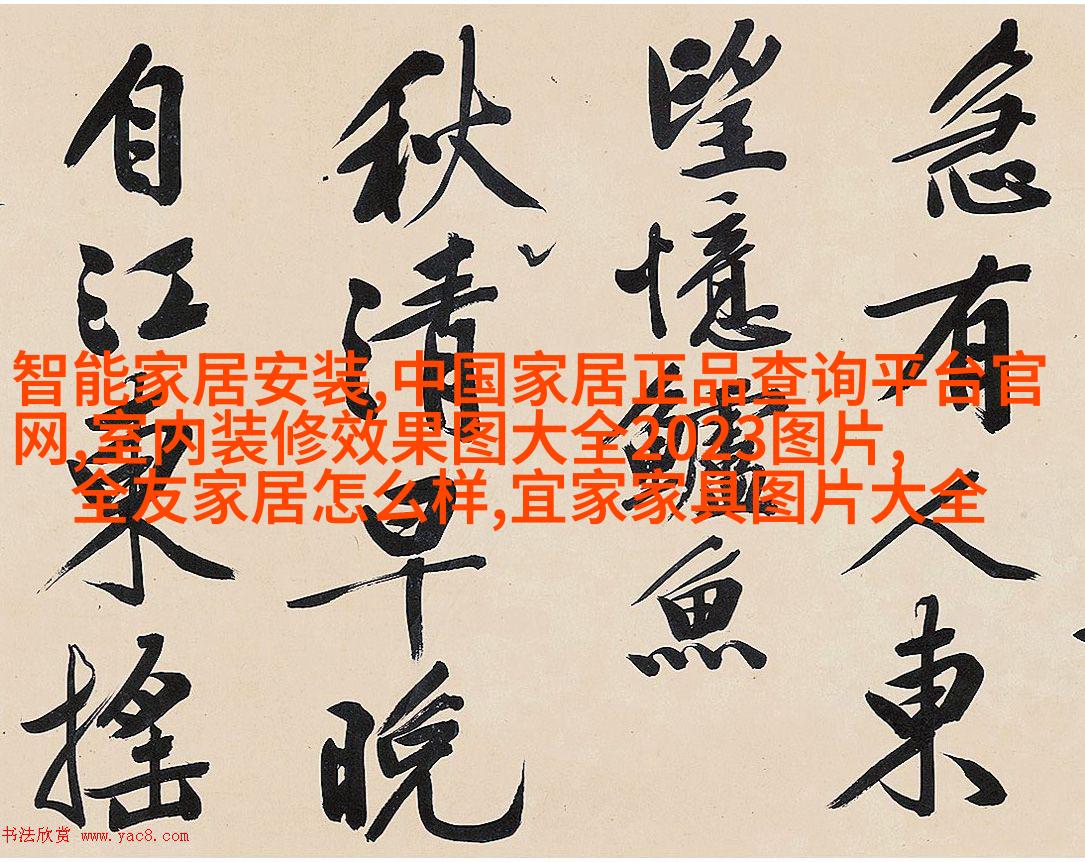 急有人東
望憶鱸魚
秋清早晚
自江東搖
智能家居安装,中国家居正品查询平台官
网,室内装修效果图大全2023图片,
全友家居怎么样,宜家家具图片大全
书法欣赏 www.yac8.com